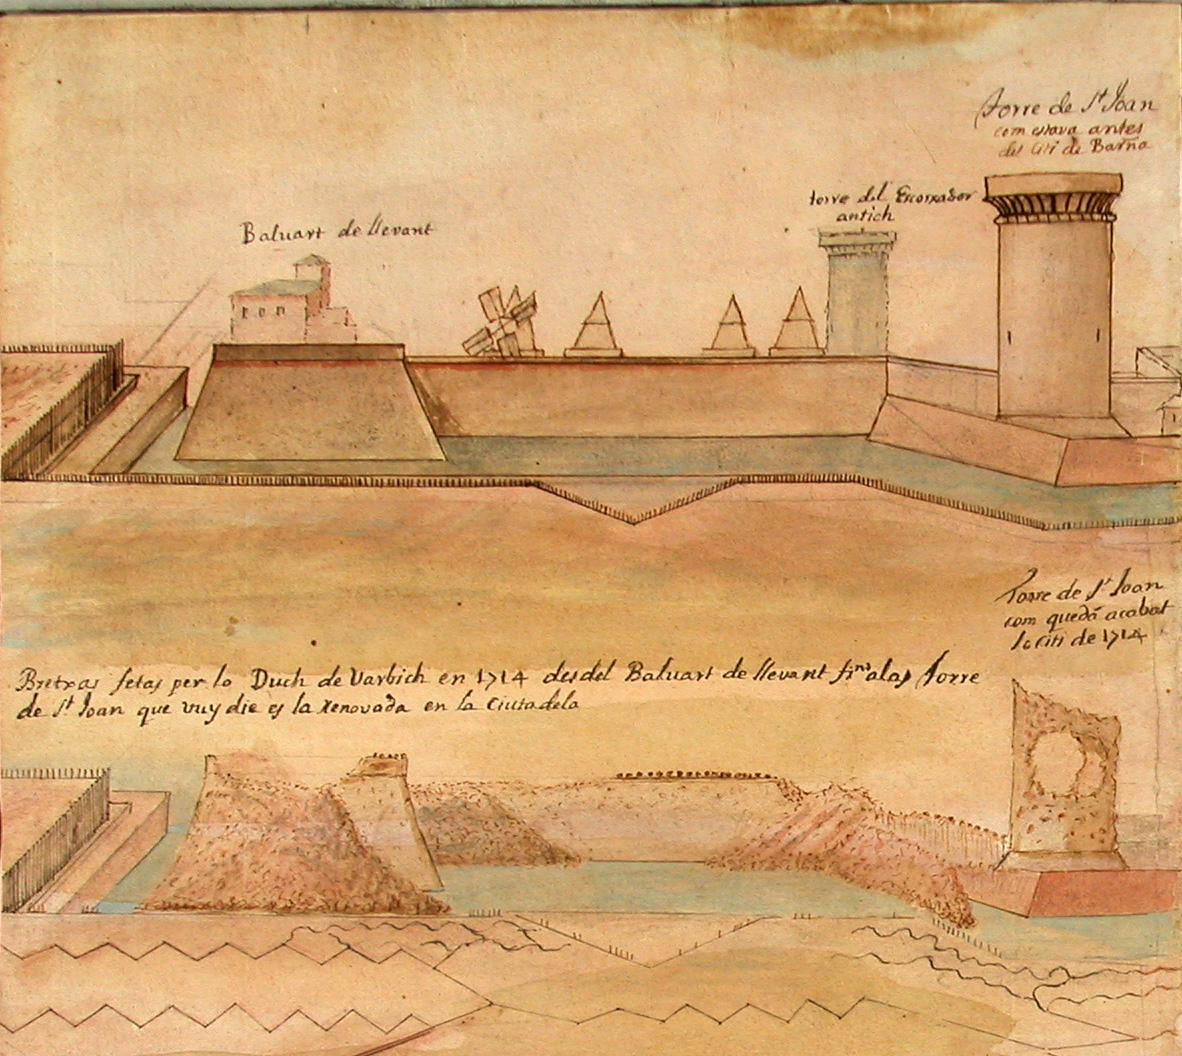 Torre de St Joan
com estava antes
del citi de Barna
torre del Escorxador
antich
Baluart de llevant
Torre de St Joan
com quedá acabat
lo citi de 1714
Bretxas fetas per lo Duch de Varbich en 1714 desdel Baluart de llevant fins alas Torre
de St Joan que vuy die es la Renovada en la Ciutadela